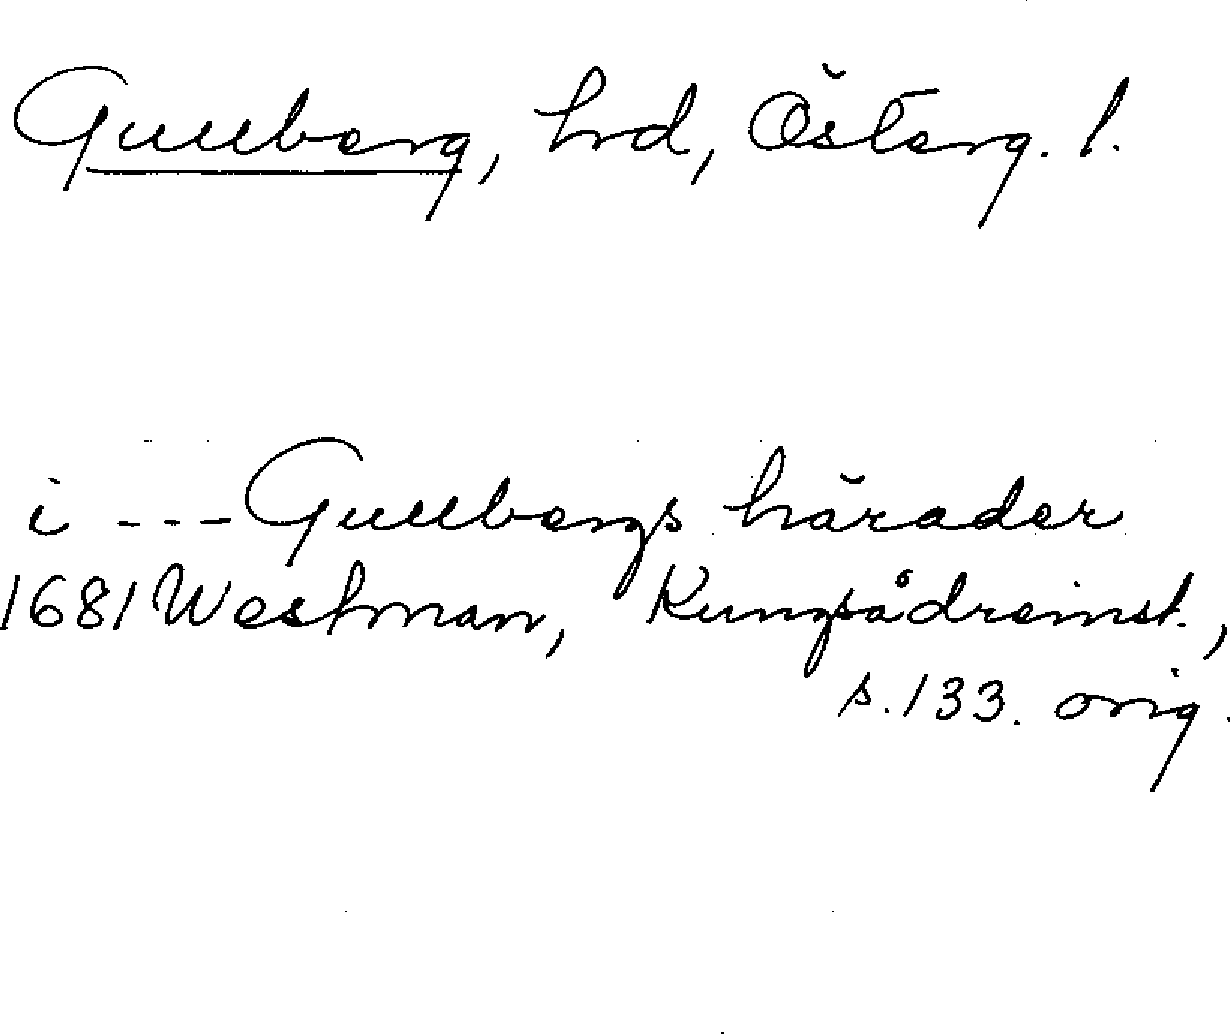 Gullberg, hrd, Österg. l.
i --- Gullbergs härader
1681 Westman, Kungsådreinst.,
s. 133. orig.